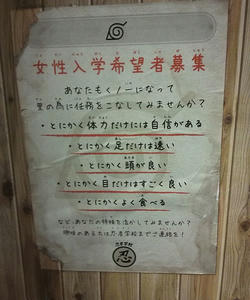 女性入学希望者募集
あなたもくノ一になって
里の為に任務をこなしてみませんか？
・とにかく体力だけには自信がある
・とにかく足だけは速い
・とにかく頭が良い
・とにかく目だけはすごく良い
・とにかくよく食べる
など、あなたの特技を活かしてみませんか？
興味のある方は忍者学校までご連絡を！
忍者学校
忍